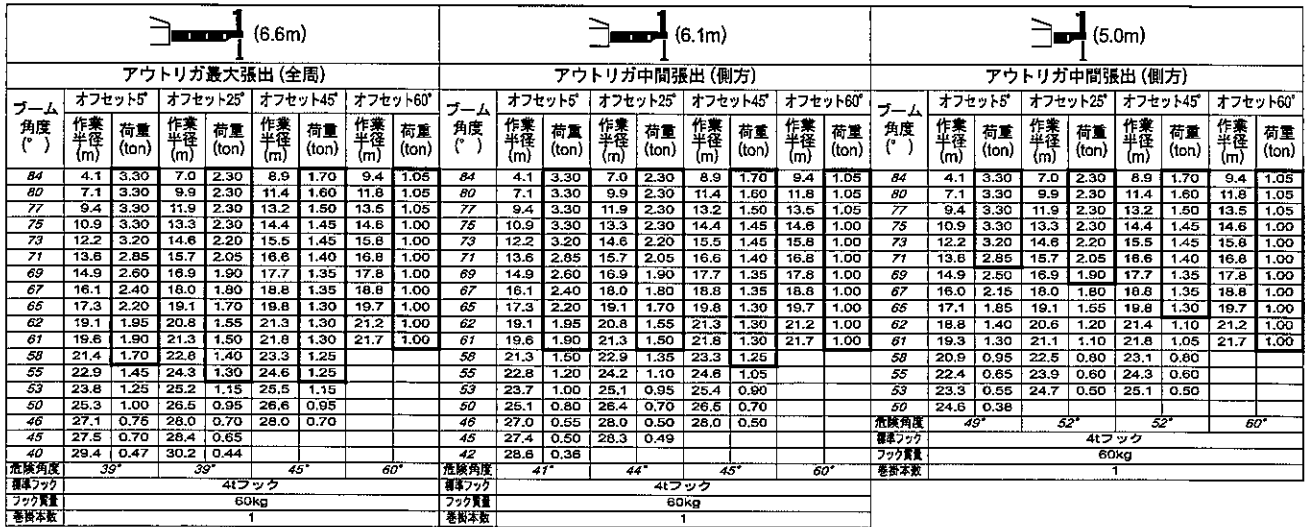 (6.6m)
アウトリガ最大張出(全周)
ブーム角度(°) オフセット5° オフセット25° オフセット45° オフセット60°
作業半径(m) 荷重(ton) 作業半径(m) 荷重(ton) 作業半径(m) 荷重(ton) 作業半径(m) 荷重(ton)
84 4.1 3.30 7.0 2.30 8.9 1.70 9.4 1.05
80 7.1 3.30 9.9 2.30 11.4 1.60 11.8 1.05
77 9.4 3.30 11.9 2.30 13.2 1.50 13.5 1.05
75 10.9 3.30 13.3 2.30 14.4 1.45 14.6 1.00
73 12.2 3.20 14.6 2.20 15.5 1.45 15.8 1.00
71 13.6 2.85 15.7 2.05 16.6 1.40 16.8 1.00
69 14.9 2.60 16.9 1.90 17.7 1.35 17.8 1.00
67 16.1 2.40 18.0 1.80 18.8 1.35 18.8 1.00
65 17.3 2.20 19.1 1.70 19.8 1.30 19.7 1.00
62 19.1 1.95 20.8 1.55 21.3 1.30 21.2 1.00
61 19.6 1.90 21.3 1.50 21.8 1.30 21.7 1.00
58 21.4 1.70 22.8 1.40 23.3 1.25
55 22.9 1.45 24.3 1.30 24.6 1.25
53 23.8 1.25 25.2 1.15 25.5 1.15
50 25.3 1.00 26.5 0.95 26.6 0.95
46 27.1 0.75 28.0 0.70 28.0 0.70
45 27.5 0.70 28.4 0.65
40 29.4 0.47 30.2 0.44
危険角度 39° 39° 45° 60°
標準フック 4tフック
フック質量 60kg
巻掛本数 1
(6.1m)
アウトリガ中間張出(側方)
ブーム角度(°) オフセット5° オフセット25° オフセット45° オフセット60°
作業半径(m) 荷重(ton) 作業半径(m) 荷重(ton) 作業半径(m) 荷重(ton) 作業半径(m) 荷重(ton)
84 4.1 3.30 7.0 2.30 8.9 1.70 9.4 1.05
80 7.1 3.30 9.9 2.30 11.4 1.60 11.8 1.05
77 9.4 3.30 11.9 2.30 13.2 1.50 13.5 1.05
75 10.9 3.30 13.3 2.30 14.4 1.45 14.6 1.00
73 12.2 3.20 14.6 2.20 15.5 1.45 15.8 1.00
71 13.6 2.85 15.7 2.05 16.6 1.40 16.8 1.00
69 14.9 2.60 16.9 1.90 17.7 1.35 17.8 1.00
67 16.1 2.40 18.0 1.80 18.8 1.35 18.8 1.00
65 17.3 2.20 19.1 1.70 19.8 1.30 19.7 1.00
62 19.1 1.95 20.8 1.55 21.3 1.30 21.2 1.00
61 19.6 1.90 21.3 1.50 21.8 1.30 21.7 1.00
58 21.3 1.50 22.9 1.35 23.3 1.25
55 22.8 1.20 24.2 1.10 24.6 1.05
53 23.7 1.00 25.1 0.95 25.4 0.90
50 25.1 0.80 26.4 0.70 26.5 0.70
46 27.0 0.55 28.0 0.50 28.0 0.50
45 27.4 0.50 28.3 0.49
42 28.6 0.36
危険角度 41° 44° 45° 60°
標準フック 4tフック
フック質量 60kg
巻掛本数 1
(5.0m)
アウトリガ中間張出(側方)
ブーム角度(°) オフセット5° オフセット25° オフセット45° オフセット60°
作業半径(m) 荷重(ton) 作業半径(m) 荷重(ton) 作業半径(m) 荷重(ton) 作業半径(m) 荷重(ton)
84 4.1 3.30 7.0 2.30 8.9 1.70 9.4 1.05
80 7.1 3.30 9.9 2.30 11.4 1.60 11.8 1.05
77 9.4 3.30 11.9 2.30 13.2 1.50 13.5 1.05
75 10.9 3.30 13.3 2.30 14.4 1.45 14.6 1.00
73 12.2 3.20 14.6 2.20 15.5 1.45 15.8 1.00
71 13.6 2.85 15.7 2.05 16.6 1.40 16.8 1.00
69 14.9 2.50 16.9 1.90 17.7 1.35 17.8 1.00
67 16.0 2.15 18.0 1.80 18.8 1.35 18.8 1.00
65 17.1 1.85 19.1 1.55 19.8 1.30 19.7 1.00
62 18.8 1.40 20.6 1.20 21.4 1.10 21.2 1.00
61 19.3 1.30 21.1 1.10 21.8 1.05 21.7 1.00
58 20.9 0.95 22.5 0.80 23.1 0.80
55 22.4 0.65 23.9 0.60 24.3 0.60
53 23.3 0.55 24.7 0.50 25.1 0.50
50 24.6 0.38
危険角度 49° 52° 52° 60°
標準フック 4tフック
フック質量 60kg
巻掛本数 1